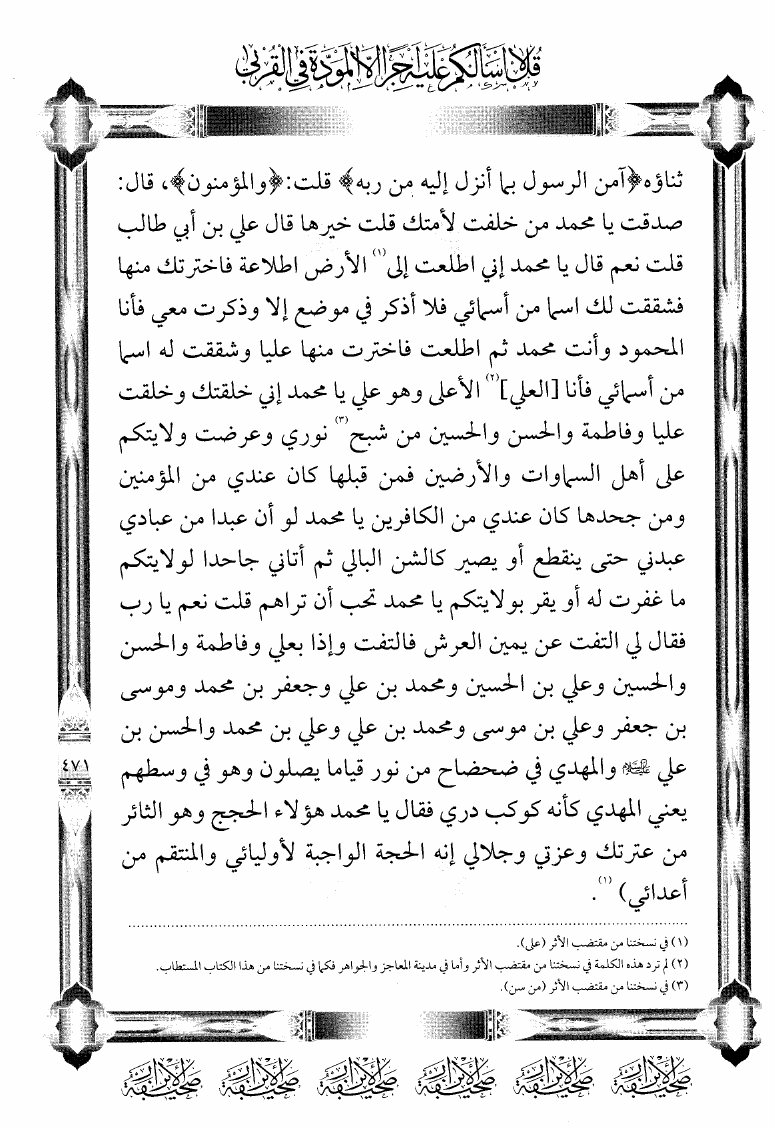 قل لا أسألكم عليه أجرا إلا المودة في القربى
ثناؤه ﴿آمن الرسول بما أنزل إليه من ربه﴾ قلت: ﴿والمؤمنون﴾، قال:
صدقت يا محمد من خلفت لأمتك قلت خيرها قال علي بن أبي طالب
قلت نعم قال يا محمد إني اطلعت إلى(١) الأرض اطلاعة فاخترتك منها
فشققت لك اسما من أسمائي فلا أذكر في موضع إلا وذكرت معي فأنا
المحمود وأنت محمد ثم اطلعت فاخترت منها عليا وشققت له اسما
من أسمائي فأنا [العلي](٢) الأعلى وهو علي يا محمد إني خلقتك وخلقت
عليا وفاطمة والحسن والحسين من شبح(٣) نوري وعرضت ولايتكم
على أهل السماوات والأرضين فمن قبلها كان عندي من المؤمنين
ومن جحدها كان عندي من الكافرين يا محمد لو أن عبدا من عبادي
عبدني حتى ينقطع أو يصير كالشن البالي ثم أتاني جاحدا لولايتكم
ما غفرت له أو يقر بولايتكم يا محمد تحب أن تراهم قلت نعم يا رب
فقال لي التفت عن يمين العرش فالتفت وإذا بعلي وفاطمة والحسن
والحسين وعلي بن الحسين ومحمد بن علي وجعفر بن محمد وموسى
بن جعفر وعلي بن موسى ومحمد بن علي وعلي بن محمد والحسن بن
علي عليه السلام والمهدي في ضحضاح من نور قياما يصلون وهو في وسطهم
يعني المهدي كأنه كوكب دري فقال يا محمد هؤلاء الحجج وهو الثائر
من عترتك وعزتي وجلالي إنه الحجة الواجبة لأوليائي والمنتقم من
أعدائي)(١).
(١) في نسختنا من مقتضب الأثر (على).
(٢) لم ترد هذه الكلمة في نسختنا من مقتضب الأثر وأما في مدينة المعاجز والجواهر فكما في نسختنا من هذا الكتاب المستطاب.
(٣) في نسختنا من مقتضب الأثر (من سن).
٤٧١
صحيفة الأبرار صحيفة الأبرار صحيفة الأبرار صحيفة الأبرار صحيفة الأبرار صحيفة الأبرار